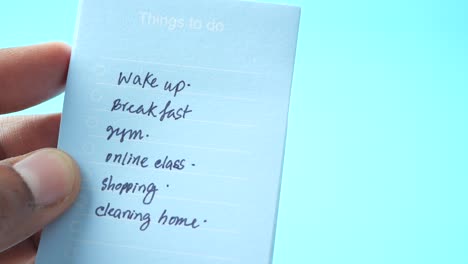 Things to do
Wake up.
Breakfast
gym.
online class.
shopping.
cleaning home.